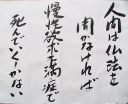 人間は仏法を
聞かなければ
慢性欲求不満症で
死んでいくかない